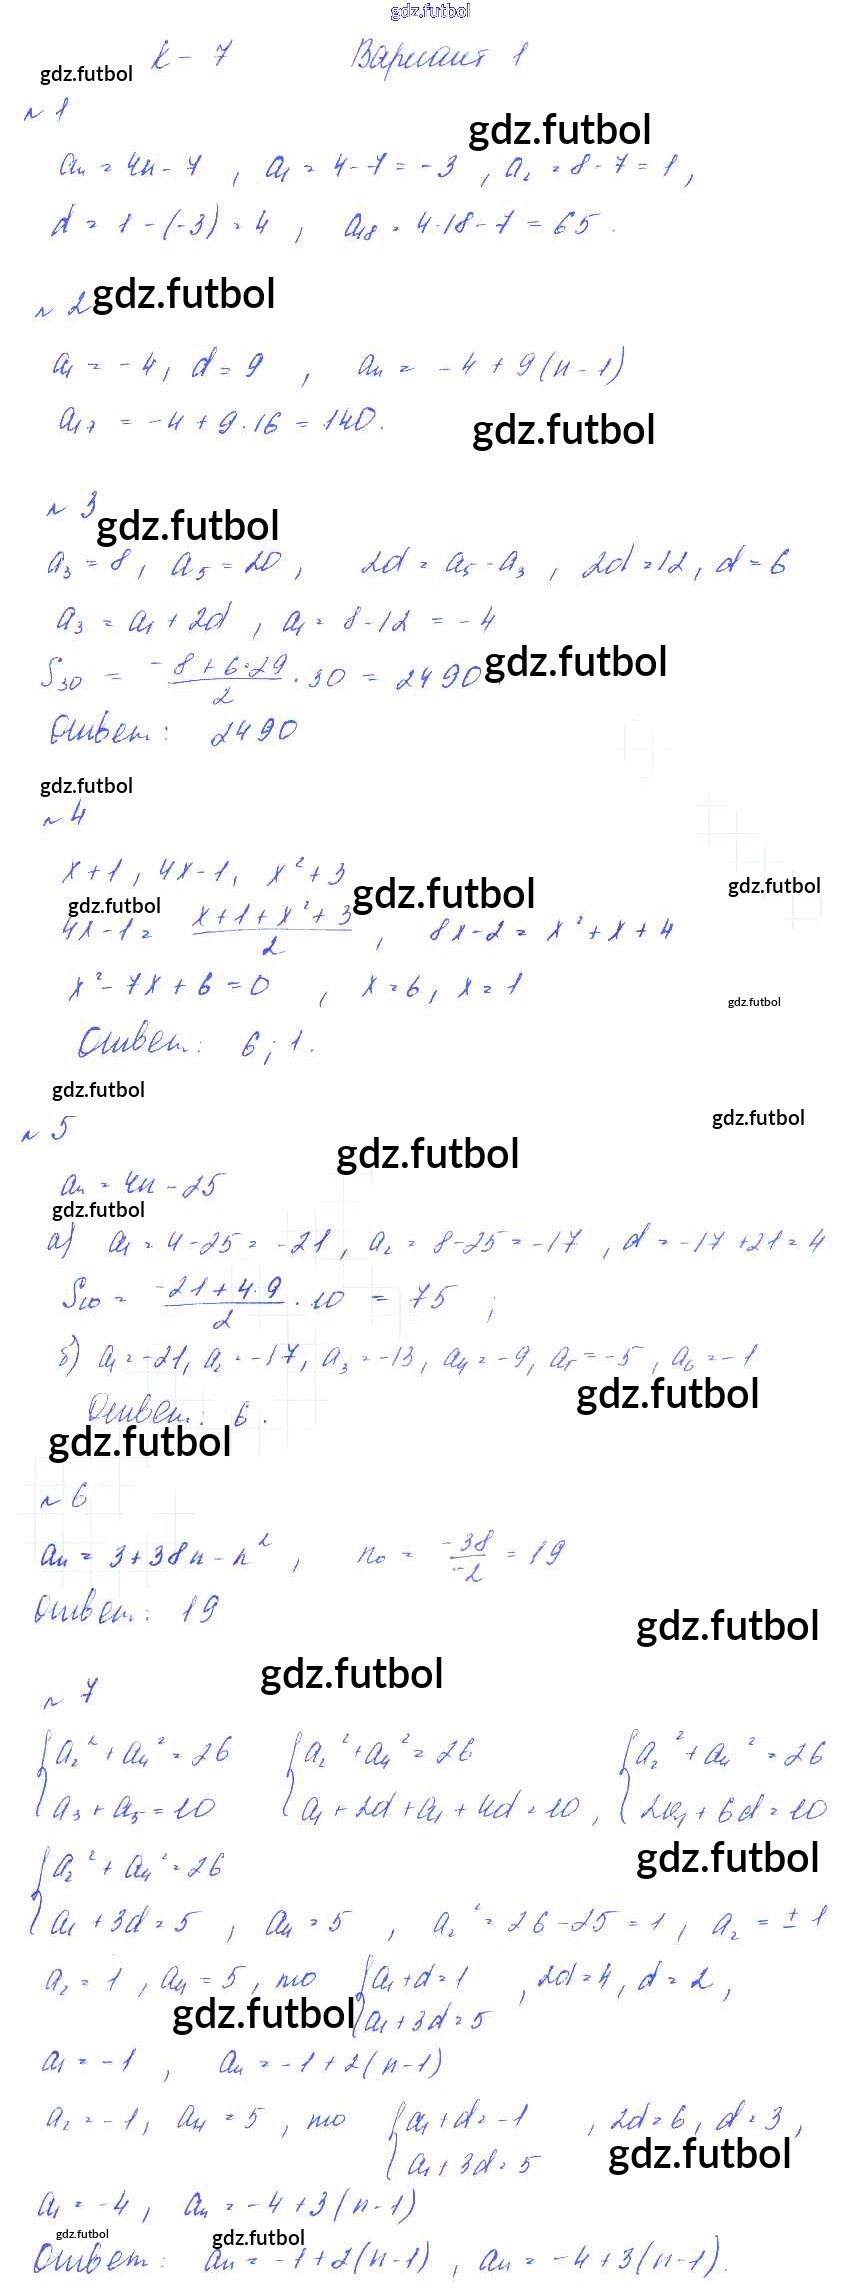 gdz.futbol
К – 7 Вариант 1
gdz.futbol
№ 1
gdz.futbol
aₙ = 4n – 7 , a₁ = 4 – 7 = – 3 , a₂ = 8 – 7 = 1 ,
d = 1 – (–3) = 4 , a₁₈ = 4·18 – 7 = 65 .
№ 2 gdz.futbol
a₁ = – 4 , d = 9 , aₙ = – 4 + 9 (n – 1)
a₁₇ = – 4 + 9·16 = 140.
gdz.futbol
№ 3
gdz.futbol
a₃ = 8 , a₅ = 20 , 2d = a₅ – a₃ , 2d = 12 , d = 6
a₃ = a₁ + 2d , a₁ = 8 – 12 = – 4
S₃₀ = (– 8 + 6·29)/2 · 30 = 2490 gdz.futbol
Ответ: 2490
gdz.futbol
№ 4
x + 1 , 4x – 1 , x² + 3
gdz.futbol gdz.futbol
gdz.futbol
4x – 1 = (x + 1 + x² + 3)/2 , 8x – 2 = x² + x + 4
x² – 7x + 6 = 0 , x = 6 , x = 1
gdz.futbol
Ответ: 6 ; 1 .
gdz.futbol
gdz.futbol
№ 5
gdz.futbol
aₙ = 4n – 25
gdz.futbol
а) a₁ = 4 – 25 = – 21 , a₂ = 8 – 25 = – 17 , d = – 17 + 21 = 4
S₁₀ = (– 21 + 4·9)/2 · 10 = 75 ;
б) a₁ = –21 , a₂ = –17 , a₃ = –13 , a₄ = –9 , a₅ = –5 , a₆ = –1
gdz.futbol
Ответ: 6 .
gdz.futbol
№ 6
aₙ = 3 + 38n – n² , n₀ = –38/–2 = 19
Ответ: 19
gdz.futbol
gdz.futbol
№ 7
{ a₂² + a₄² = 26 { a₂² + a₄² = 26 { a₂² + a₄² = 26
a₃ + a₅ = 10 a₁ + 2d + a₁ + 4d = 10 , 2a₁ + 6d = 10
gdz.futbol
{ a₂² + a₄² = 26
a₁ + 3d = 5 , a₄ = 5 , a₂² = 26 – 25 = 1 , a₂ = ± 1
a₂ = 1 , a₄ = 5 , то { a₁ + d = 1 , 2d = 4 , d = 2 ,
gdz.futbol a₁ + 3d = 5
a₁ = – 1 , aₙ = – 1 + 2 (n – 1)
a₂ = – 1 , a₄ = 5 , то { a₁ + d = – 1 , 2d = 6 , d = 3 ,
a₁ + 3d = 5 gdz.futbol
a₁ = – 4 , aₙ = – 4 + 3 (n – 1)
gdz.futbol gdz.futbol
Ответ: aₙ = – 1 + 2 (n – 1) , aₙ = – 4 + 3 (n – 1) .